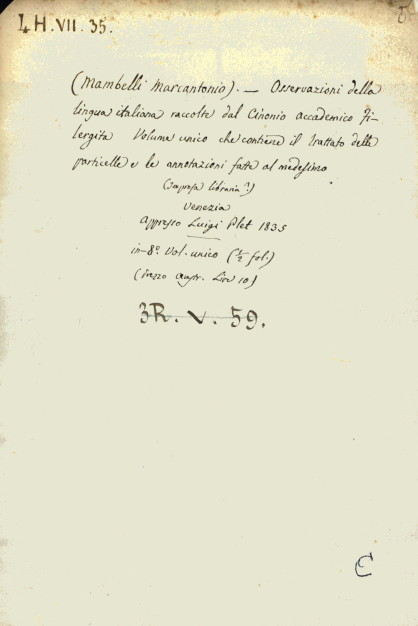 4 H. VII. 35.
(Mambelli Marcantonio). — Osservazioni della
lingua italiana raccolte dal Cinonio accademico Fi-
lergita Volume unico che contiene il trattato delle
particelle e le annotazioni fatte al medesimo
(Impresa libraria?)
Venezia
Appresso Luigi Plet 1835
in-8.º Vol. unico (½ fol.)
(Prezzo Austr. Lire 10)
3R. V. 59.
C